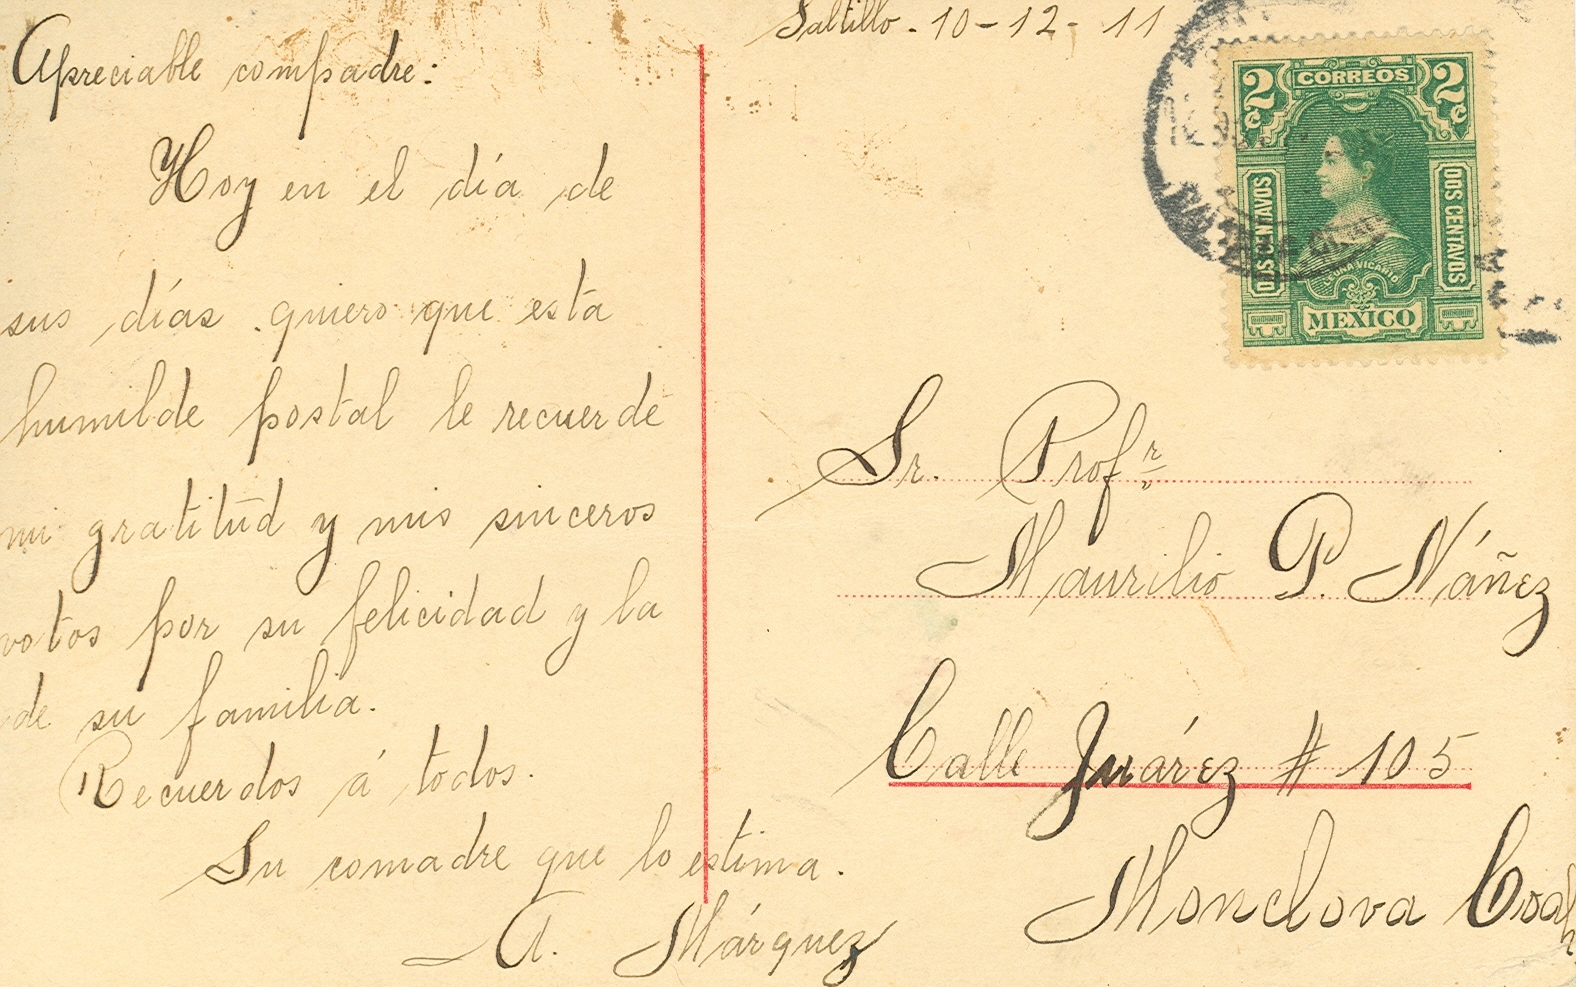 Saltillo - 10 - 12 - 11
Apreciable compadre:
Hoy en el día de
sus días quiero que esta
humilde postal le recuerde
mi gratitud y mis sinceros
votos por su felicidad y la
de su familia.
Recuerdos á todos.
Su comadre que lo estima.
A. Márquez
2c CORREOS 2c
DOS CENTAVOS
DOS CENTAVOS
LEONA VICARIO
MEXICO
Sr. Profr
Maurilio P. Náñez
Calle Juárez # 105
Monclova Coah